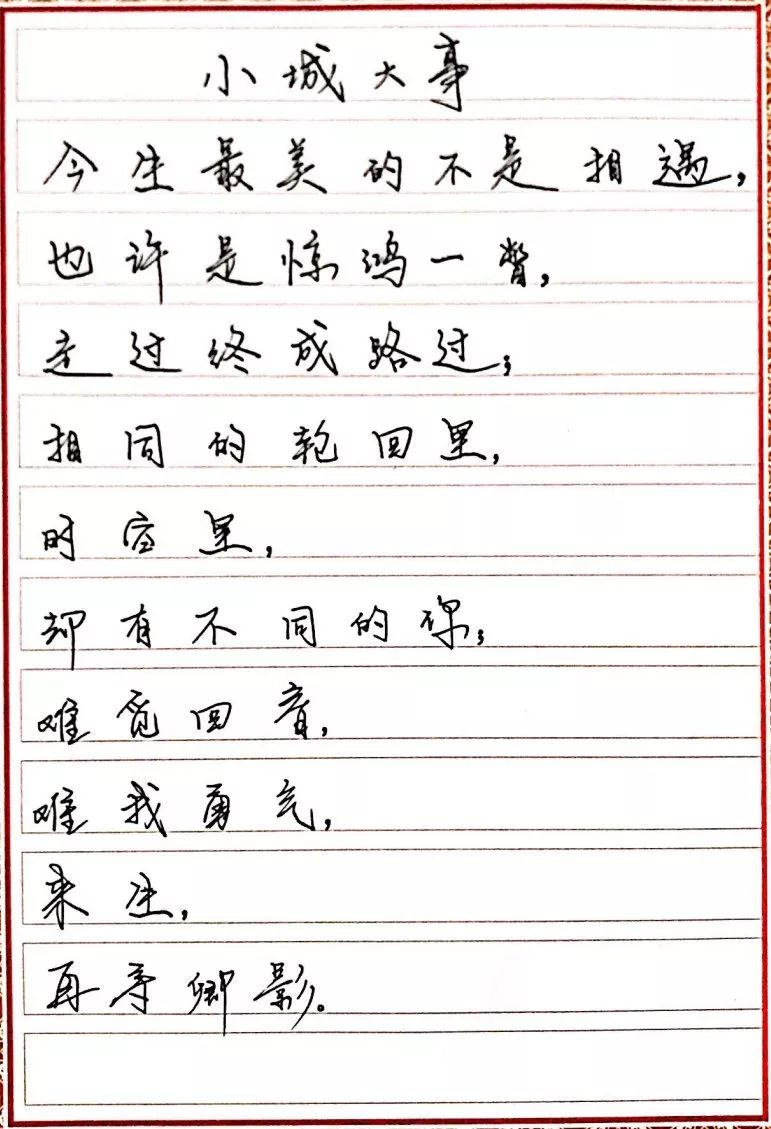 小城大事
今生最美的不是相遇，
也许是惊鸿一瞥，
走过终成路过；
相同的轮回里，
时空里，
却有不同的你；
难觅回音，
难我勇气，
来生，
再寻卿影。